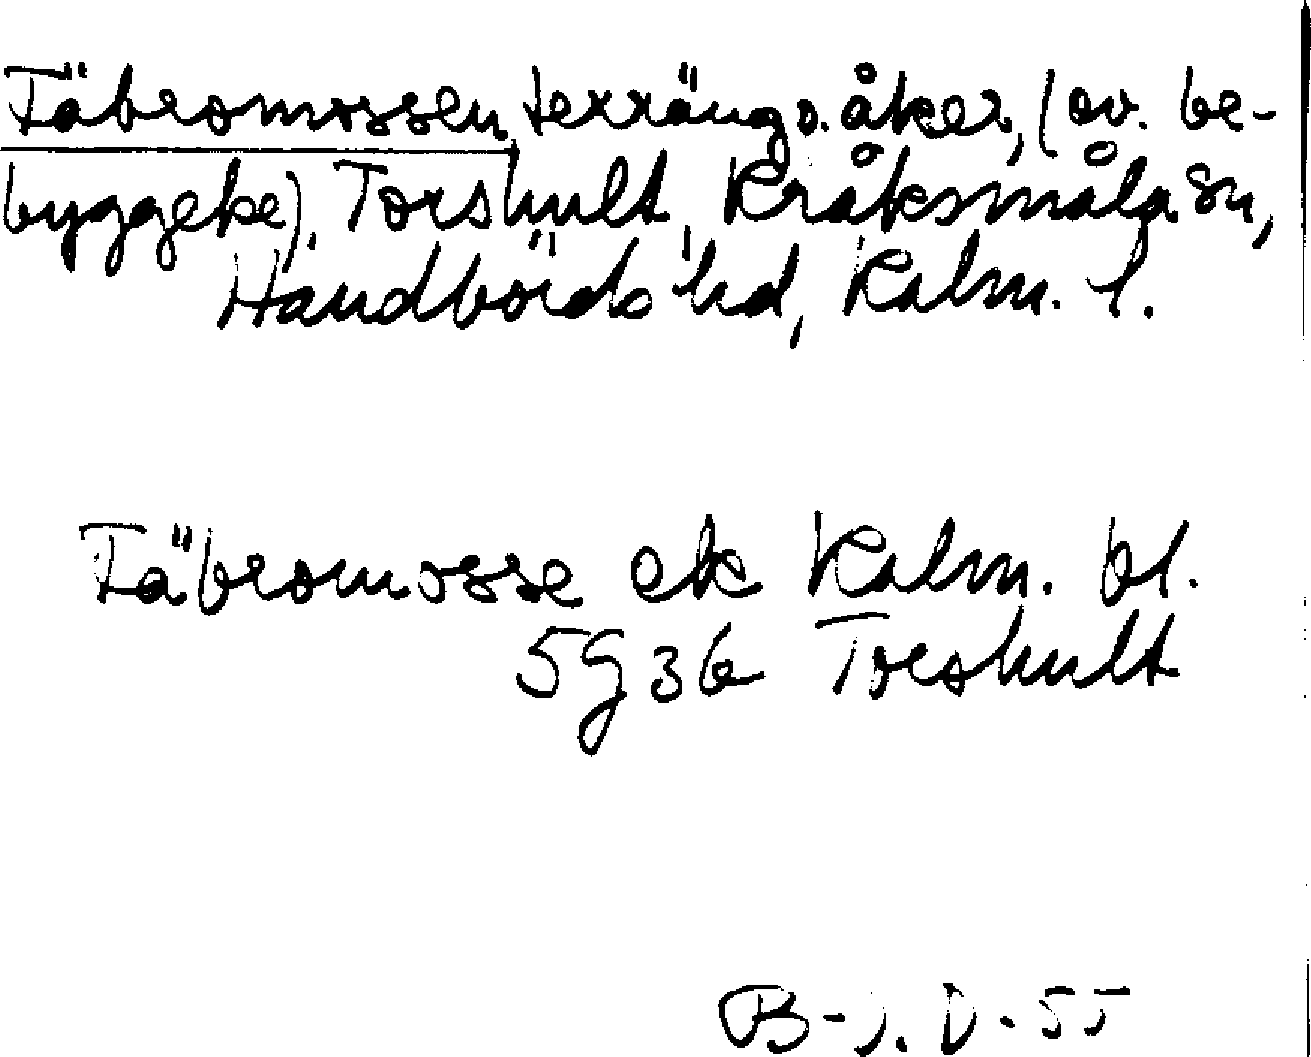 Täbromossen, terräng o. åker, (ov. be-
byggelse), Torshult, Kråksmåla sn,
Handbörds hd, Kalm. l.
Täbromosse ek Kalm. bl.
5G3b Torshult
B-J. D. 55